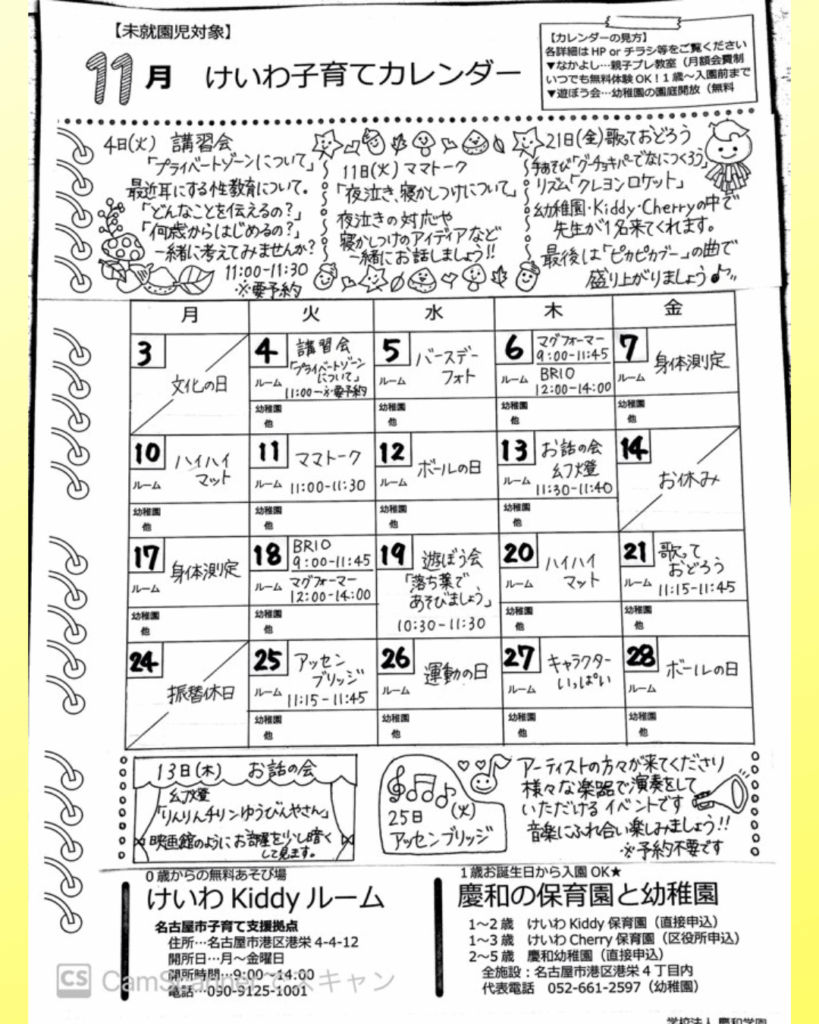 【未就園児対象】
11月 けいわ子育てカレンダー
【カレンダーの見方】
各詳細は HP or チラシ等をご覧ください
▼なかよし…親子プレ教室（月額会費制
いつでも無料体験 OK！1 歳～入園前まで
▼遊ぼう会…幼稚園の園庭開放（無料
4日(火) 講習会
「プライベートゾーンについて」
最近耳にする性教育について。
「どんなことを伝えるの？」
「何歳からはじめるの？」
一緒に考えてみませんか？
11:00-11:30
※要予約
11日(火) ママトーク
「夜泣き、寝かしつけについて」
夜泣きの対応や
寝かしつけのアイディアなど
一緒にお話しましょう!!
21日(金)歌っておどろう
手あそび「グーチョキパーでなにつくろう」
リズム「クレヨンロケット」
幼稚園・Kiddy・Cherryの中で
先生が1名来てくれます。
最後は「ピカピカブー」の曲で
盛り上がりましょう♪
月 火 水 木 金
3 文化の日
4 講習会
「プライベートゾーンについて」
ルーム 11:00-※要予約
幼稚園
他
5 バースデーフォト
ルーム
幼稚園
他
6 マグフォーマー
9:00-11:45
ルーム BRIO
12:00-14:00
幼稚園
他
7 身体測定
ルーム
幼稚園
他
10 ハイハイマット
ルーム
幼稚園
他
11 ママトーク
ルーム 11:00-11:30
幼稚園
他
12 ボールの日
ルーム
幼稚園
他
13 お話の会
幻燈
ルーム 11:30-11:40
幼稚園
他
14 お休み
17 身体測定
ルーム
幼稚園
他
18 BRIO
9:00-11:45
ルーム マグフォーマー
12:00-14:00
幼稚園
他
19 遊ぼう会
「落ち葉で
あそびましょう」
10:30-11:30
20 ハイハイマット
ルーム
幼稚園
他
21 歌って
おどろう
ルーム 11:15-11:45
幼稚園
他
24 振替休日
25 アッセン
ブリッジ
ルーム 11:15-11:45
幼稚園
他
26 運動の日
ルーム
幼稚園
他
27 キャラクター
いっぱい
ルーム
幼稚園
他
28 ボールの日
ルーム
幼稚園
他
13日(木) お話の会
幻燈
「りんりんチリンゆうびんやさん」
映画館のようにお部屋を少し暗く
して見ます。
25日(火)
アッセンブリッジ
アーティストの方々が来てくださり
様々な楽器で演奏をして
いただけるイベントです
音楽にふれ合い楽しみましょう!!
※予約不要です
0 歳からの無料あそび場
けいわ Kiddy ルーム
名古屋市子育て支援拠点
住所…名古屋市港区港栄 4-4-12
開所日…月～金曜日
開所時間…9:00～14:00
電話…090-9125-1001
1 歳お誕生日から入園 OK★
慶和の保育園と幼稚園
1～2 歳 けいわ Kiddy 保育園（直接申込）
1～3 歳 けいわ Cherry 保育園（区役所申込）
2～5 歳 慶和幼稚園（直接申込）
全施設：名古屋市港区港栄 4 丁目内
代表電話 052-661-2597（幼稚園）
CS CamScanner でスキャン
学校法人 慶和学園